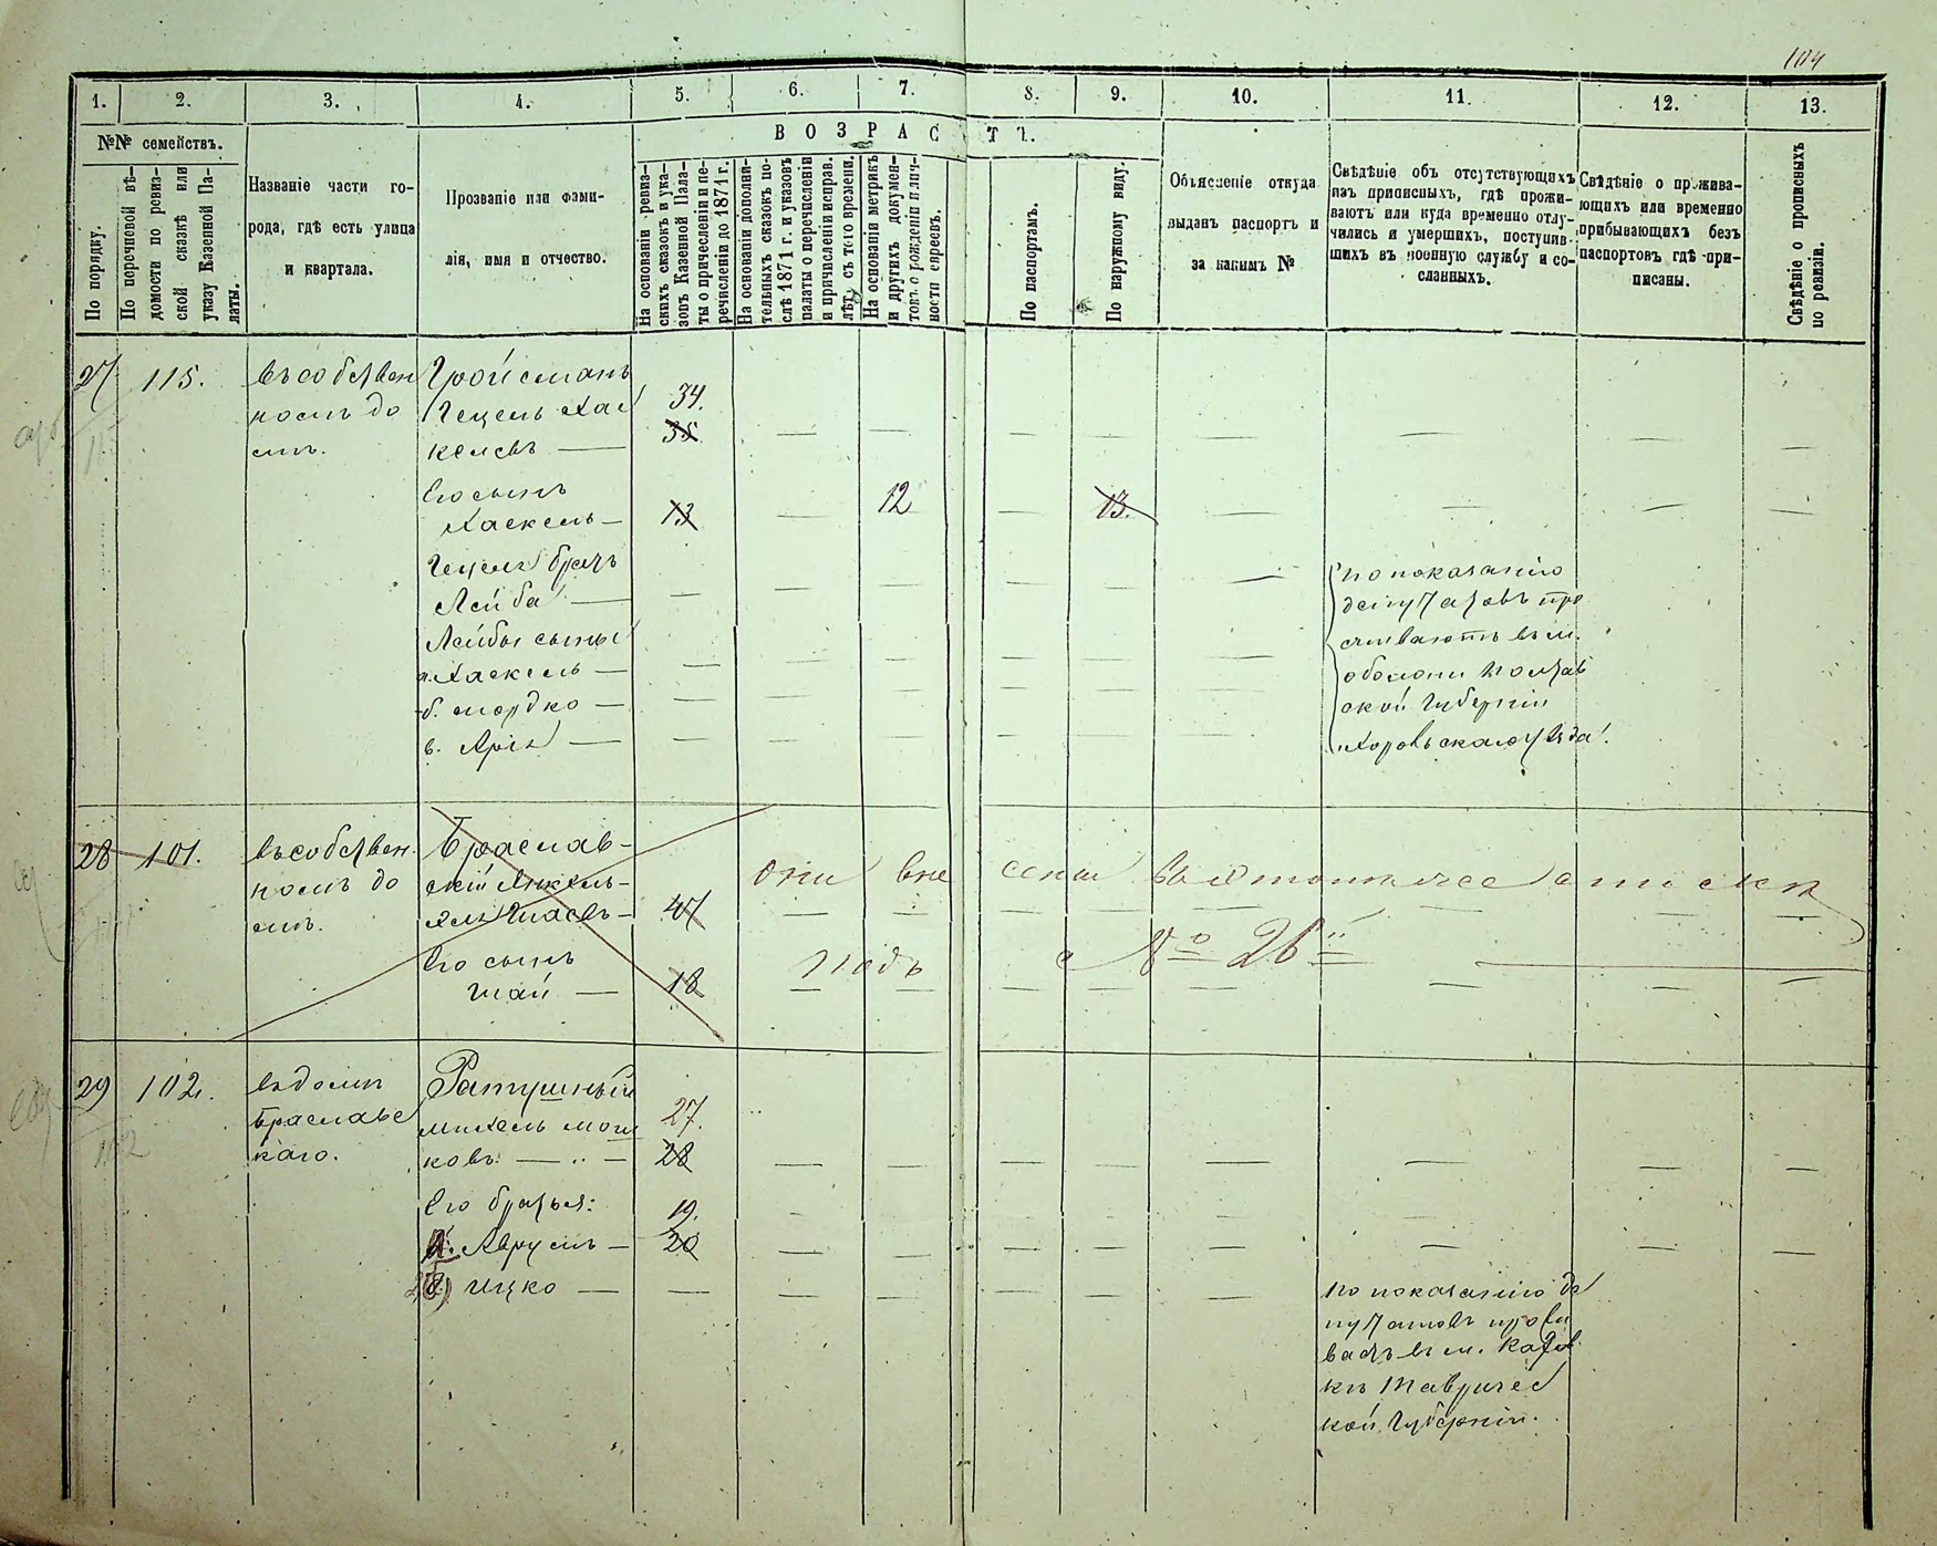 104
1. 2. 3. 4. 5. 6. 7. 8. 9. 10. 11. 12. 13.
№№ семействъ.
ВОЗРАСТЪ.
По порядку.
По перечневой вѣ-
домости по ревиз-
ской сказкѣ или
указу Казенной Па-
латы.
Названіе части го-
рода, гдѣ есть улица
и квартала.
Прозваніе или фами-
лія, имя и отчество.
На основаніи ревиз-
скихъ сказокъ и ука-
зовъ Казенной Пала-
ты о причесленіи и пе-
речисленіи до 1871 г.
На основаніи дополни-
тельныхъ сказокъ по-
слѣ 1871 г. и указовъ
палаты о перечисленіи
и причисленіи исправ.
лѣт. съ того времени.
На основаніи метрикъ
и другихъ докумен-
товъ о рожденіи и лич-
ности евреевъ.
По паспортамъ.
По наружному виду.
Объясненіе откуда
выданъ паспортъ и
за какимъ №
Свѣдѣніе объ отсутствующихъ
изъ приписныхъ, гдѣ прожи-
ваютъ или куда временно отлу-
чились и умершихъ, поступив-
шихъ въ военную службу и со-
сланныхъ.
Свѣдѣніе о прожива-
ющихъ или временно
прибывающихъ безъ
паспортовъ гдѣ при-
писаны.
Свѣдѣніе о прописныхъ
по ревизіи.
27 115. въ собствен Гройсманъ
номъ до Гецель Хас 34.
мѣ. келевъ — 35
Его сынъ
Хаскель — 13 — 12 — 13.
Гецеля братъ
Лейба —
Лейбы сыны
а. Хаскель —
б. Мордко —
в. Арія —
по показанію
депутатовъ про
живаютъ въ м.
Оболони Полтав
ской Губерніи
Хорольскаго уѣзда.
28 101. въ собствен. Браслав-
номъ до скій Янкель-
мѣ. Шаевъ — 47
Его сынъ
Шай — 18
они вне сены въ
подъ № 26
29 102. въ домѣ Ратушный
Браславс Михель Мош 27.
каго. ковъ — 28
Его братья: 19.
а. Аврумъ — 20
б) Ицко —
по показанію де
путатовъ прожи
ваетъ въ м. Кахов
кѣ Тавричес
кой Губерніи.
102